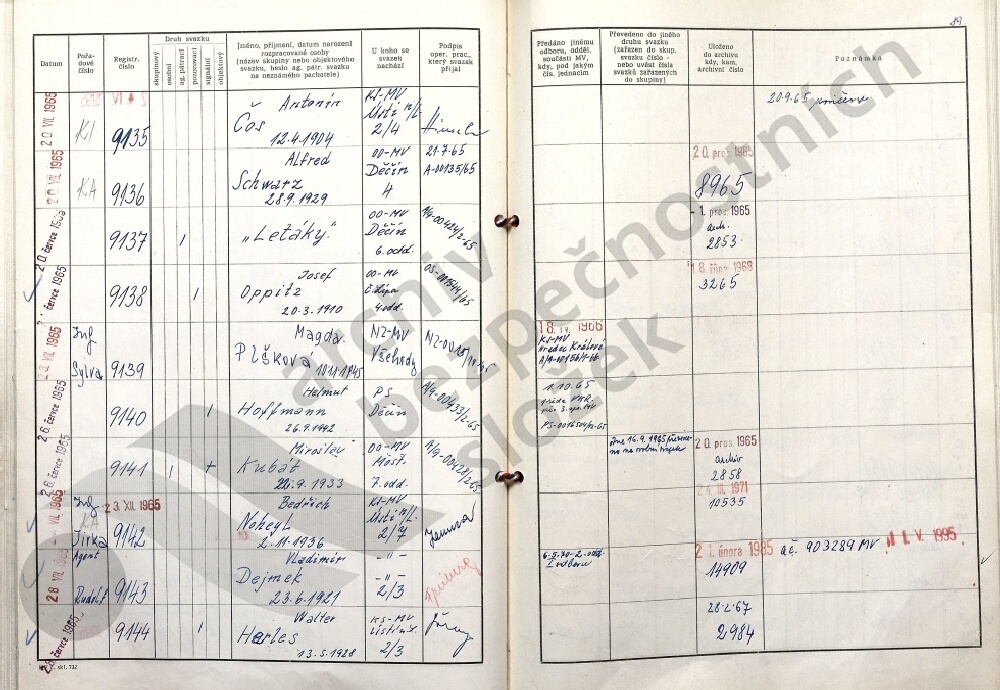 89
Datum
Pořadové číslo
Registr. číslo
Druh svazku
skupinový
osobní
ag. pátrací
pozorovací
signální
objektový
Jméno, příjmení, datum narození
rozpracované osoby
(název skupiny nebo objektového
svazku, heslo ag. pátr. svazku
na neznámého pachatele)
U koho se
svazek
nachází
Podpis
oper. prac.,
který svazek
přijal
Předáno jinému
odboru, odděl.
součásti MV,
kdy, pod jakým
čís. jednacím
Převedeno do jiného
druhu svazku
(zařazen do skup.
svazku číslo -
nebo uvést čísla
svazků zařazených
do skupiny)
Uloženo
do archivu
kdy, kam,
archivní číslo
Poznámka
20. VII. 1965
KI
9135
Antonín
Čos
12.4.1904
KS-MV
Ústí n/L.
2/4
20.9.65
20. VII. 1965
KA
9136
Alfred
Schwarz
28.9.1929
OO-MV
Děčín
4
21.7.65
A-00135/65
20. pros. 1965
8965
20. července 1965
9137
"Letáky"
OO-MV
Děčín
6. odd.
A/g-00424/2-65
- 1. pros. 1965
arch.
2853
července 1965
9138
Josef
Oppitz
20.3.1910
OO-MV
Č. Lípa
4. odd.
18. října 1968
3265
VII. 1965
Ing
Sylva
9139
Magda
Plšková
10.11.1945
NZ-MV
Všehrdy
18. IV. 1966
KS-MV
Hradec Králové
26. července 1965
9140
Helmut
Hoffmann
26.9.1942
PS
Děčín
A/g-00433/2-65
1.10.65
26. července 1965
9141
Miroslav
Kubát
22.9.1933
OO-MV
Most
7. odd.
A/g-00428/2-65
dne 16.9.1965
20. pros. 1965
archiv
2858
VII. 1965
Ing
KA
Jirka
23. XII. 1965
9142
Bedřich
Noheyl
2.11.1936
KS-MV
Ústí n/L.
2/7
24. III. 1971
10535
28. VII. 1965
Agent
Rudolf
9143
Vladimír
Dejmek
23.6.1921
- " -
- " -
2/3
6.5.70-2. odd.
I. odboru
21. února 1985
14909
a.č. 903289 MV
11. V. 1995
července 1965
9144
Walter
Herles
13.5.1928
KS-MV
Ústí n.L.
2/3
28.2.67
2984
skl. 732
archiv
bezpečnostních
složek